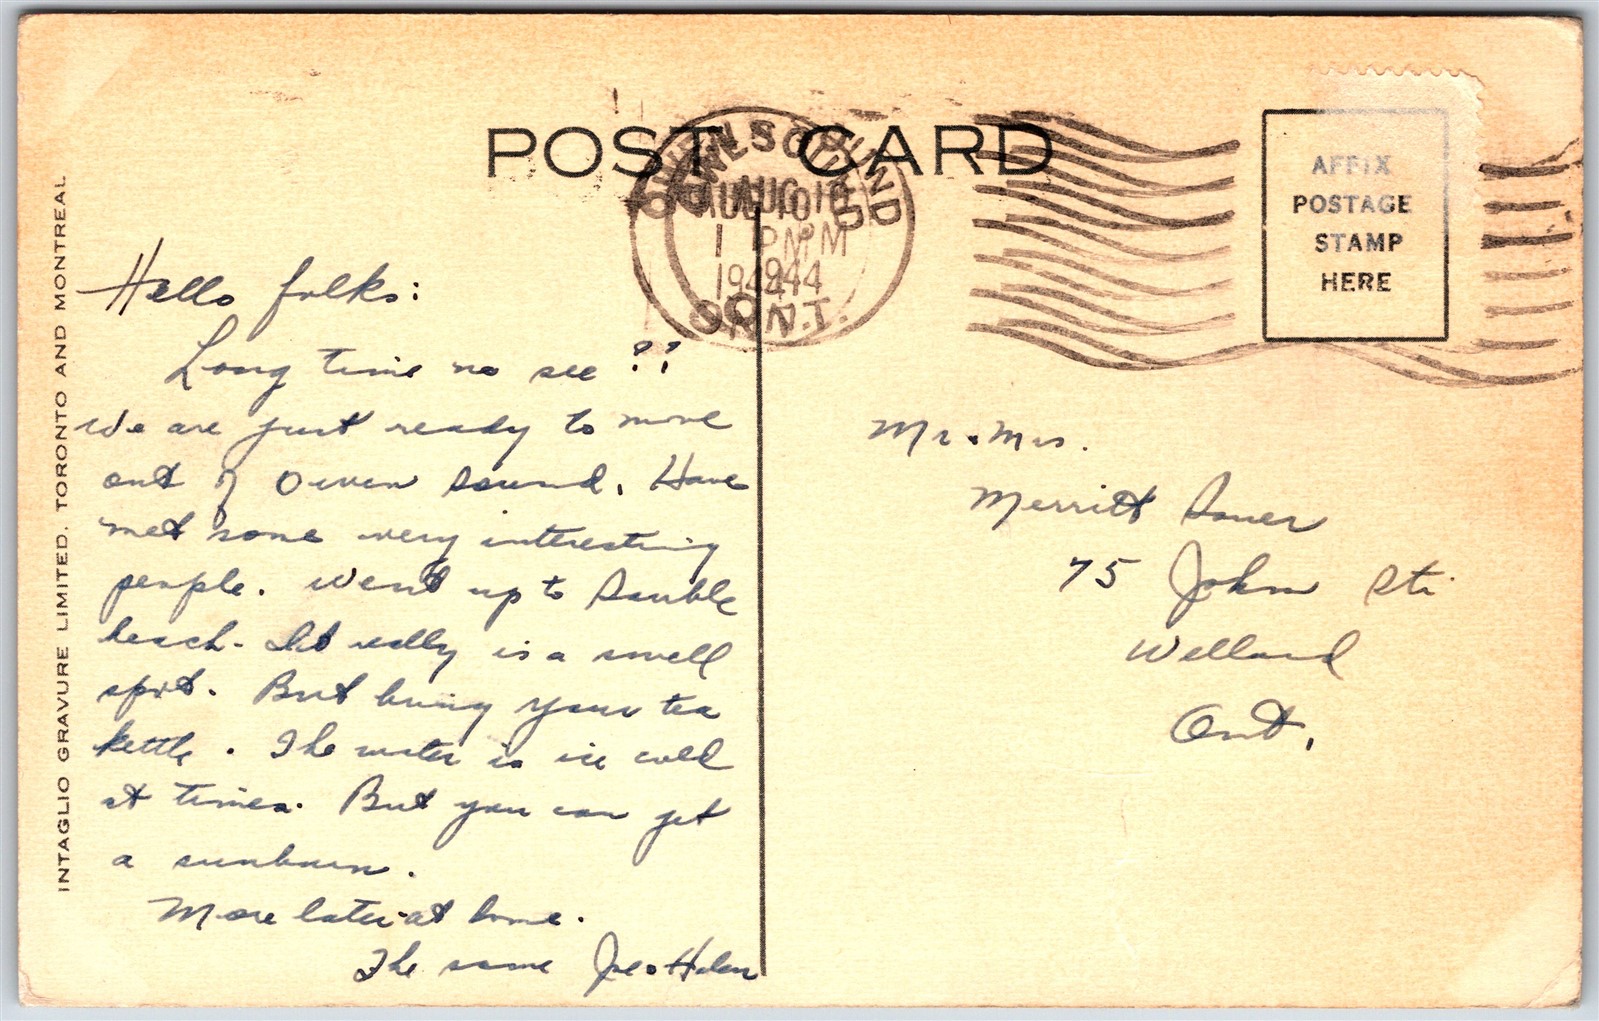 POST CARD
OWEN SOUND
AUG 10
1 PM
1944
ONT.
AFFIX
POSTAGE
STAMP
HERE
INTAGLIO GRAVURE LIMITED, TORONTO AND MONTREAL
Hello folks:
Long time no see ??
We are just ready to move
out of Owen Sound. Have
met some very interesting
people. Went up to Sauble
beach. It really is a swell
spot. But bring your tea
kettle. The water is ice cold
at times. But you can get
a sunburn.
More later at home.
The same Joe & Helen
Mr. & Mrs.
Merritt
75 John St.
Welland
Ont.